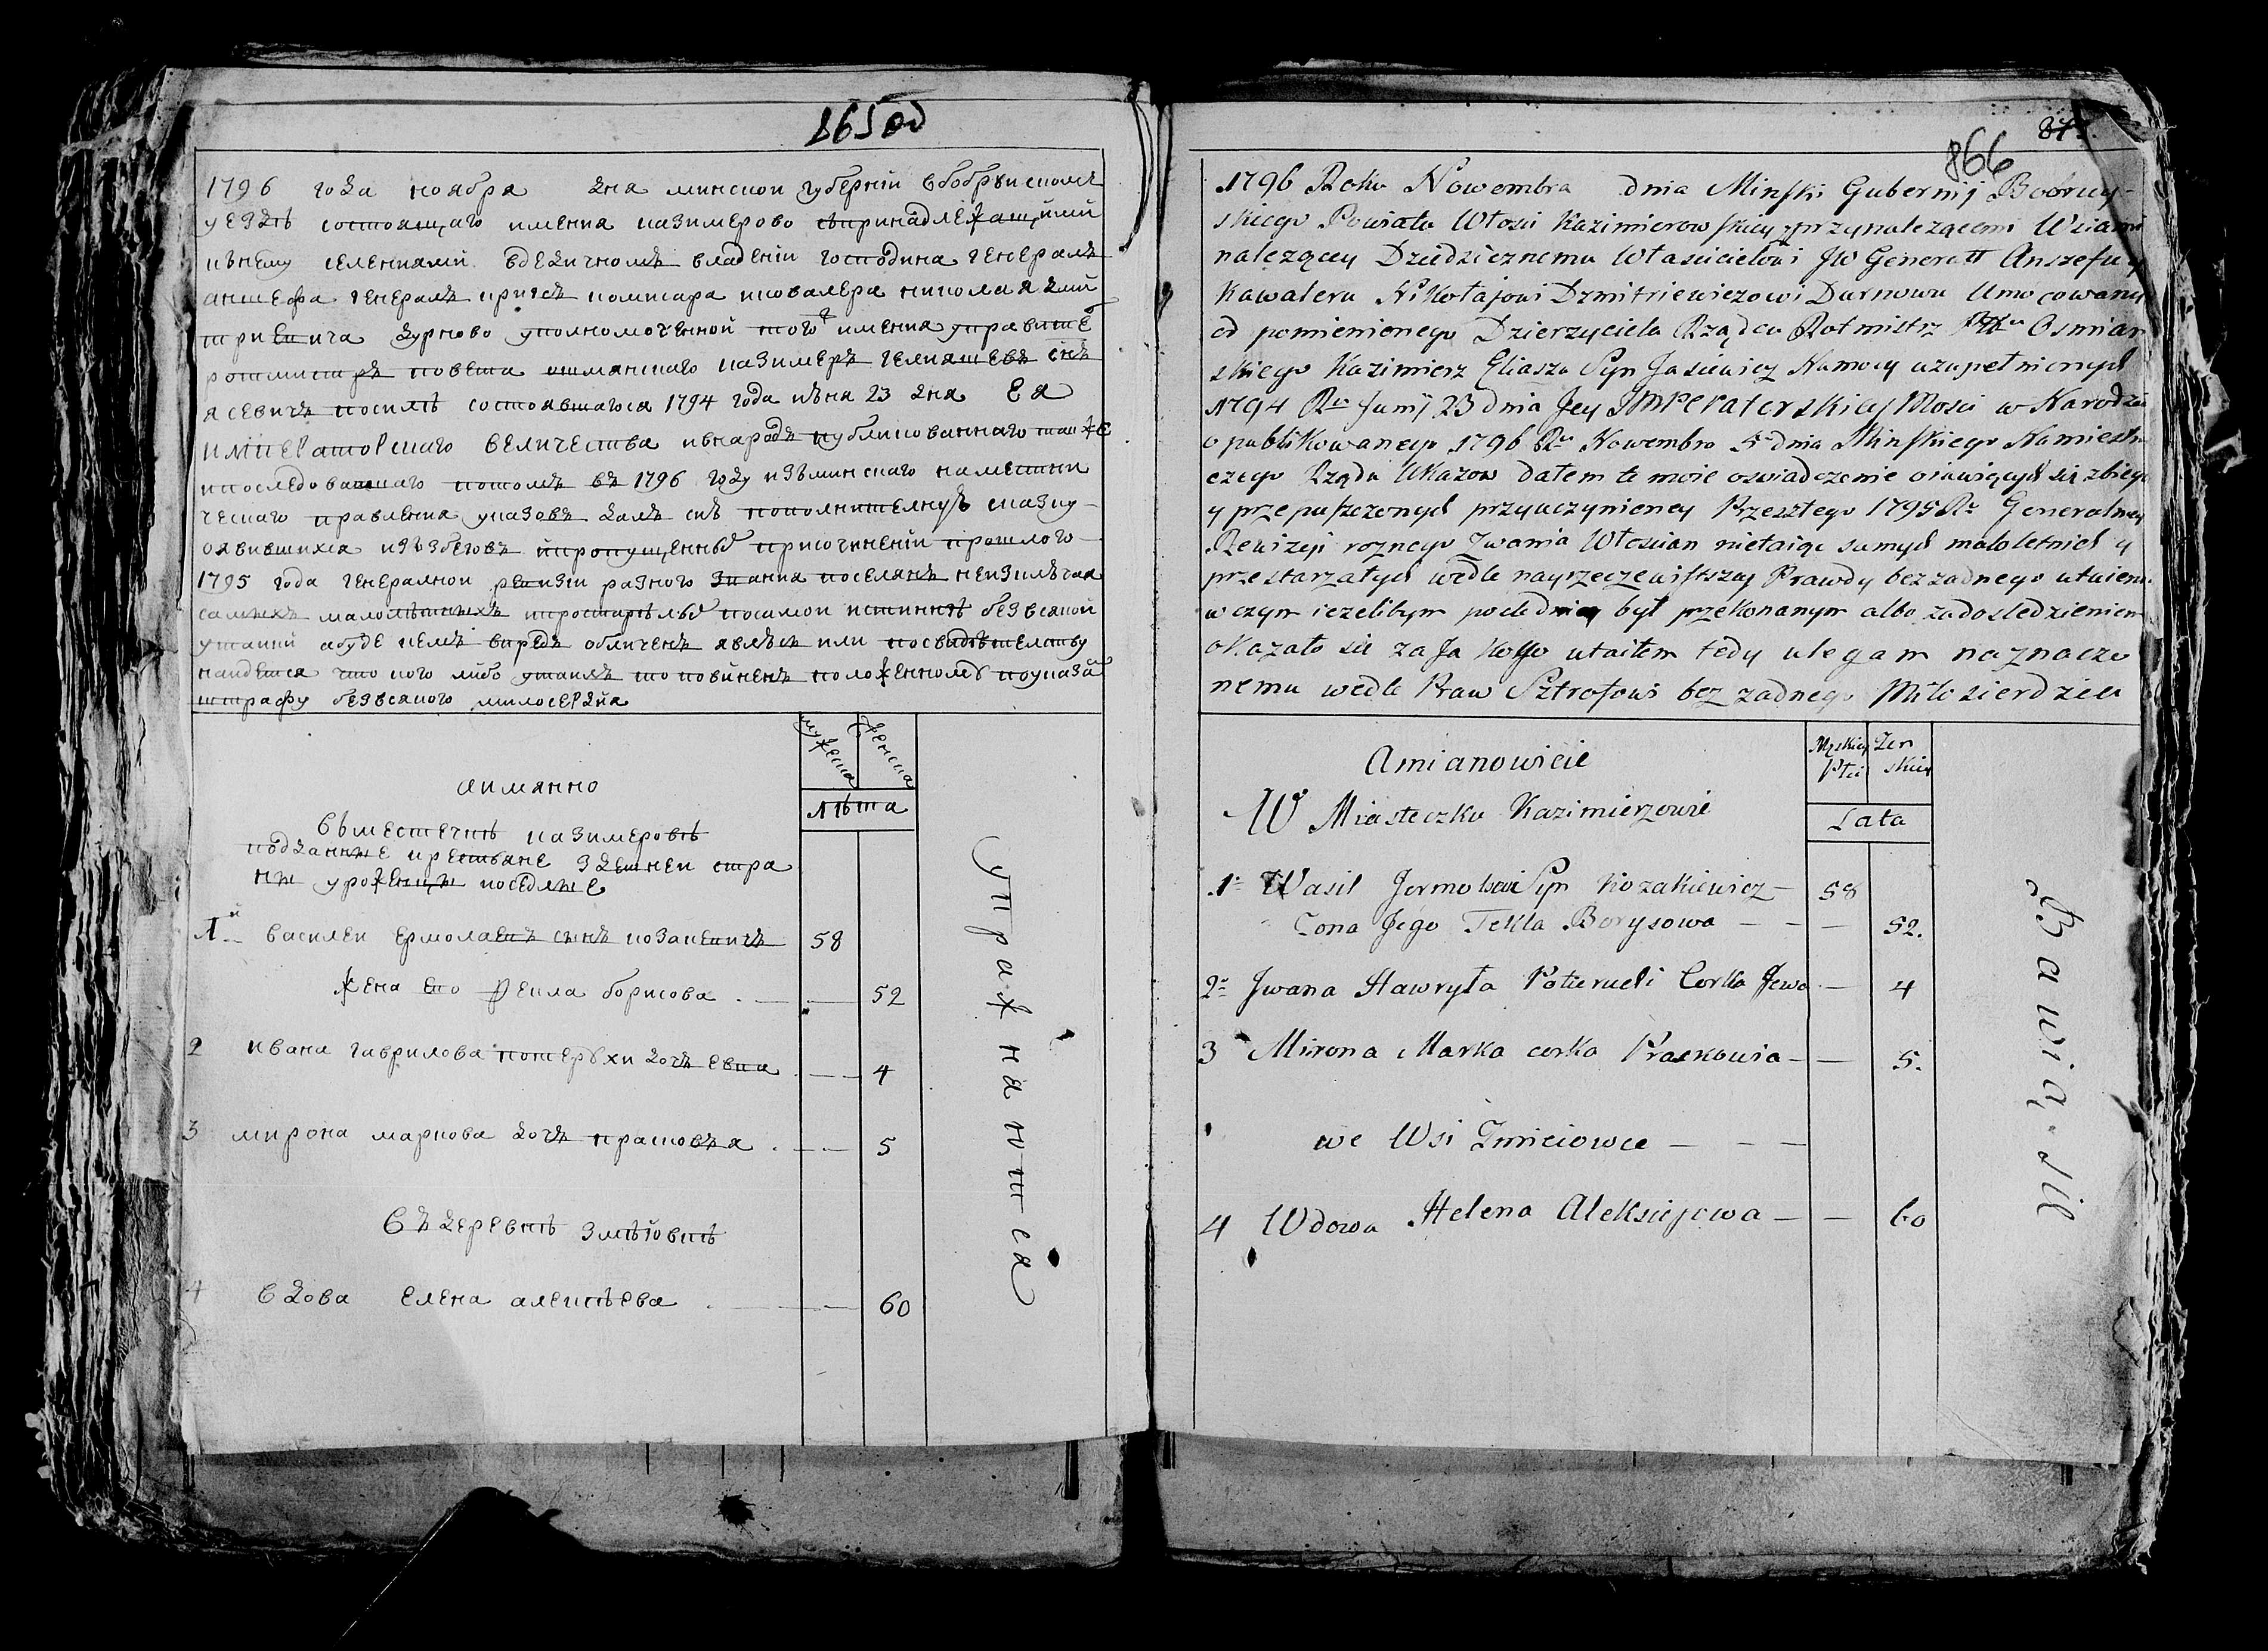 865 об
1796 года ноября дня минскои губерніи вбобрыискомъ
уездѣ состоящаго имения казимерово съпринадлежащими
кънему селениями вдедичномъ владеніи господина генералъ
аншефа генералъ кригсъ комисара икавалера николая дми
триевича дурново уполномоченной того имения управите
ротмистръ повета ошмянского казимеръ гелияшевъ сынъ
ясевичъ посилѣ состоявшагося 1794 года июня 23 дня Ея
императорскаго величества ивнародъ публикованнаго также
ипоследовавшаго потомъ въ 1796 году изъминскаго наместни
ческаго правления указовъ далъ сию пополнителную сказку
оявившихся изъбеговъ ипропущенныхъ присочинении прошлого
1795 года генералнои ревизіи разного звания поселянъ неизключая
самыхъ малолѣтныхъ ипрестарѣлыхъ посамои истиннѣ безвсякой
утайки абуде кемъ впредь обличенъ явлюсь или посвидѣтелству
найдется что кого либо утаилъ то повиненъ положенному поуказамъ
штрафу безвсякого милосердия
мужеска
женска
лѣта
аимянно
въместечкѣ казимеровѣ
подданные крестьяне здешнеи стра
ны уроженцы поседлые
1й василеи ермолаевъ сынъ козакевичъ 58
жена его Фекла борисова 52
2 ивана гаврилова потерухи дочь евка 4
3 мирона маркова дочь прасковья 5
Въ деревнѣ змѣювкѣ
4 вдова елена алексѣева 60
упражняются
866
1796 Roku Nowembra dnia Minski Gubernij Bobruy-
skiego Powiatu Włosci Kazimierowskiey zprzynalezącemi Wsiami
nalezącey Dziedzicznemu Własicielowi JW Generałł Anszefu y
Kawaleru Nikołajowi Dzmitriewiczowi Durnowu Umocowany
od pomienionego Dzierzyciela Rządca Rotmistrz Pttu Osmian
skiego Kazimierz Eliasza Syn Jasiewicz Namocy uzupełnionych
1794 Ru Junij 23 dnia Jey Imperatorskiey Mosci w Narodzie
opublikowanego 1796 Ru Nowembra 5 dnia Minskiego Namiestni
czego Rządu Ukazow dałem te moie oswiadczenie oiawiących się zbiegow
y przepuszczonych przyuczynieney Przeszłego 1795 Ru Generalney
Rewizeji roznego Zwania Włoscian nietaiąc samych małoletnich y
przestarzałych wedle nayrzeczewistszey Prawdy bezzadnego utaienia
wczym iezelibym posledniey był przekonanym albo zadosledzieniem
okazało sie za Ja kogo utaiłem tedy ulegam naznaczo
nemu wedle Praw Sztrofowi bez zadnego Miłosierdzia
Męskiey Płci
Zen skiey
Lata
Amianowicie
W Miasteczku Kazimierzowie
1 Wasil Jermołaiow Syn Kozakiewicz 58
Zona Jego Tekla Borysowa 52.
2 Jwana Hawryła Potieruchi Corka Jewa 4
3 Mirona Marka corka Praskowia 5.
we Wsi Zmieiowce
4 Wdowa Helena Aleksiejowa 60
Bawią sie